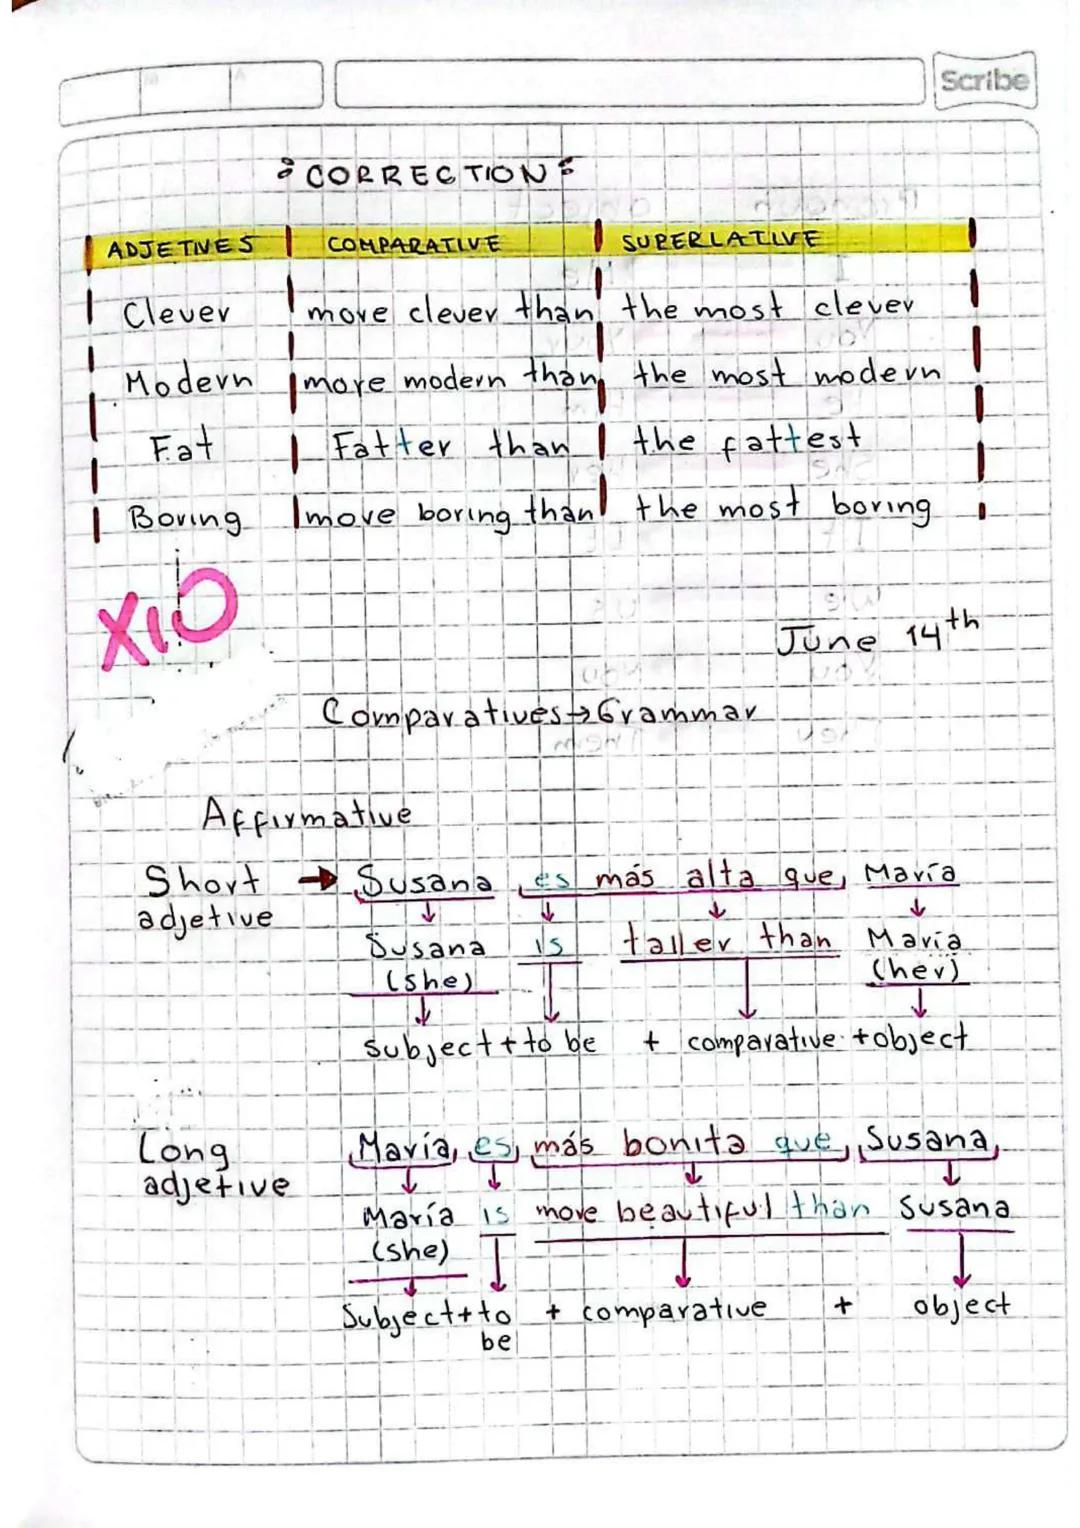 Scribe
CORRECTION
ADJETIVES COMPARATIVE SUPERLATIVE
Clever more clever than the most clever
Modern more modern than the most modern
Fat Fatter than the fattest
Boring more boring than the most boring
X10
June 14th
Comparatives→Grammar
Affirmative
Short → Susana es más alta que María
adjetive Susana is taller than María
(she) (her)
subject + to be + comparative + object
Long María es más bonita que Susana
adjetive María is more beautiful than Susana
(she)
Subject + to + comparative + object
be